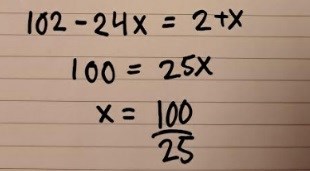 102 - 24x = 2+x
100 = 25x
x = 100/25